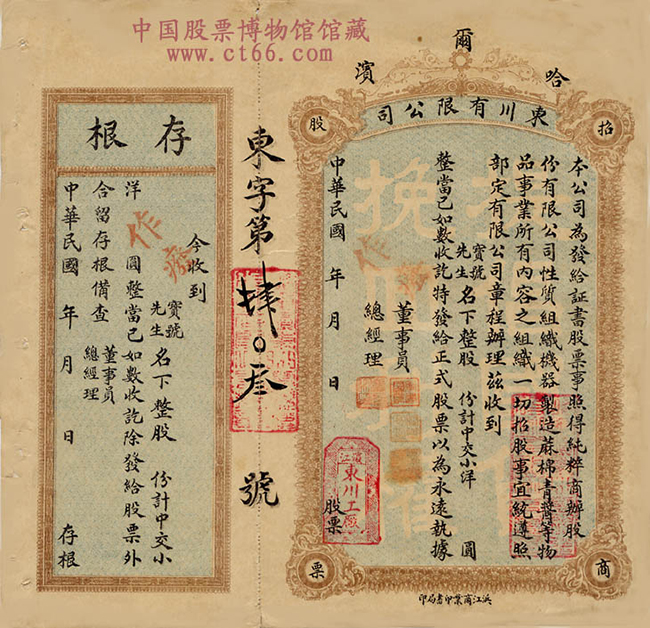 中国股票博物馆馆藏
www.ct66.com
哈爾濱
東川有限公司
招
股
商
票
本公司為發給証書股票事照得純粹商辦股
份有限公司性質組織機器製造蔴棉青醬等物
品事業所有內容之組織一切招股事宜統遵照
部定有限公司章程辦理茲收到
寶號
先生
名下整股
份計中交小洋
圓
整當已如數收訖特發給正式股票以為永遠執據
董事員
總經理
中華民國
年
月
日
股票
濱江
東川工廠
作
挽
濱江商業印書局印
東字第肆0叁號
存根
今收到
寶號
先生
名下整股
份計中交小
洋
圓整當已如數收訖除發給股票外
合留存根備查
董事員
總經理
中華民國
年
月
日
存根
作廢